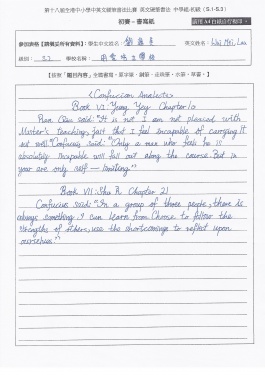 第十八屆全港中小學中英文硬筆書法比賽 英文硬筆書法 中學組-初級 (S.1-S.3)
初賽 - 書寫紙
參加資格【請填妥所有資料】學生中文姓名: 英文姓名:
班別: S.2 學校名稱:
<Confucian Analects>
Book VI: Yong Yey Chapter 10
Ran Qiu said: "It is not I am not pleased with
Master's teachings, just that I feel incapable of carrying it
out well." Confucius said: "Only a man who feels he is
absolutely incapable will fall out along the course. But in
your are only self - limiting."
Book VII: Shu R Chapter 21
Confucius said: "In a group of three people, there is
always something I can learn from. Choose to follow the
strengths of others, use the shortcomings to reflect upon
ourselves."